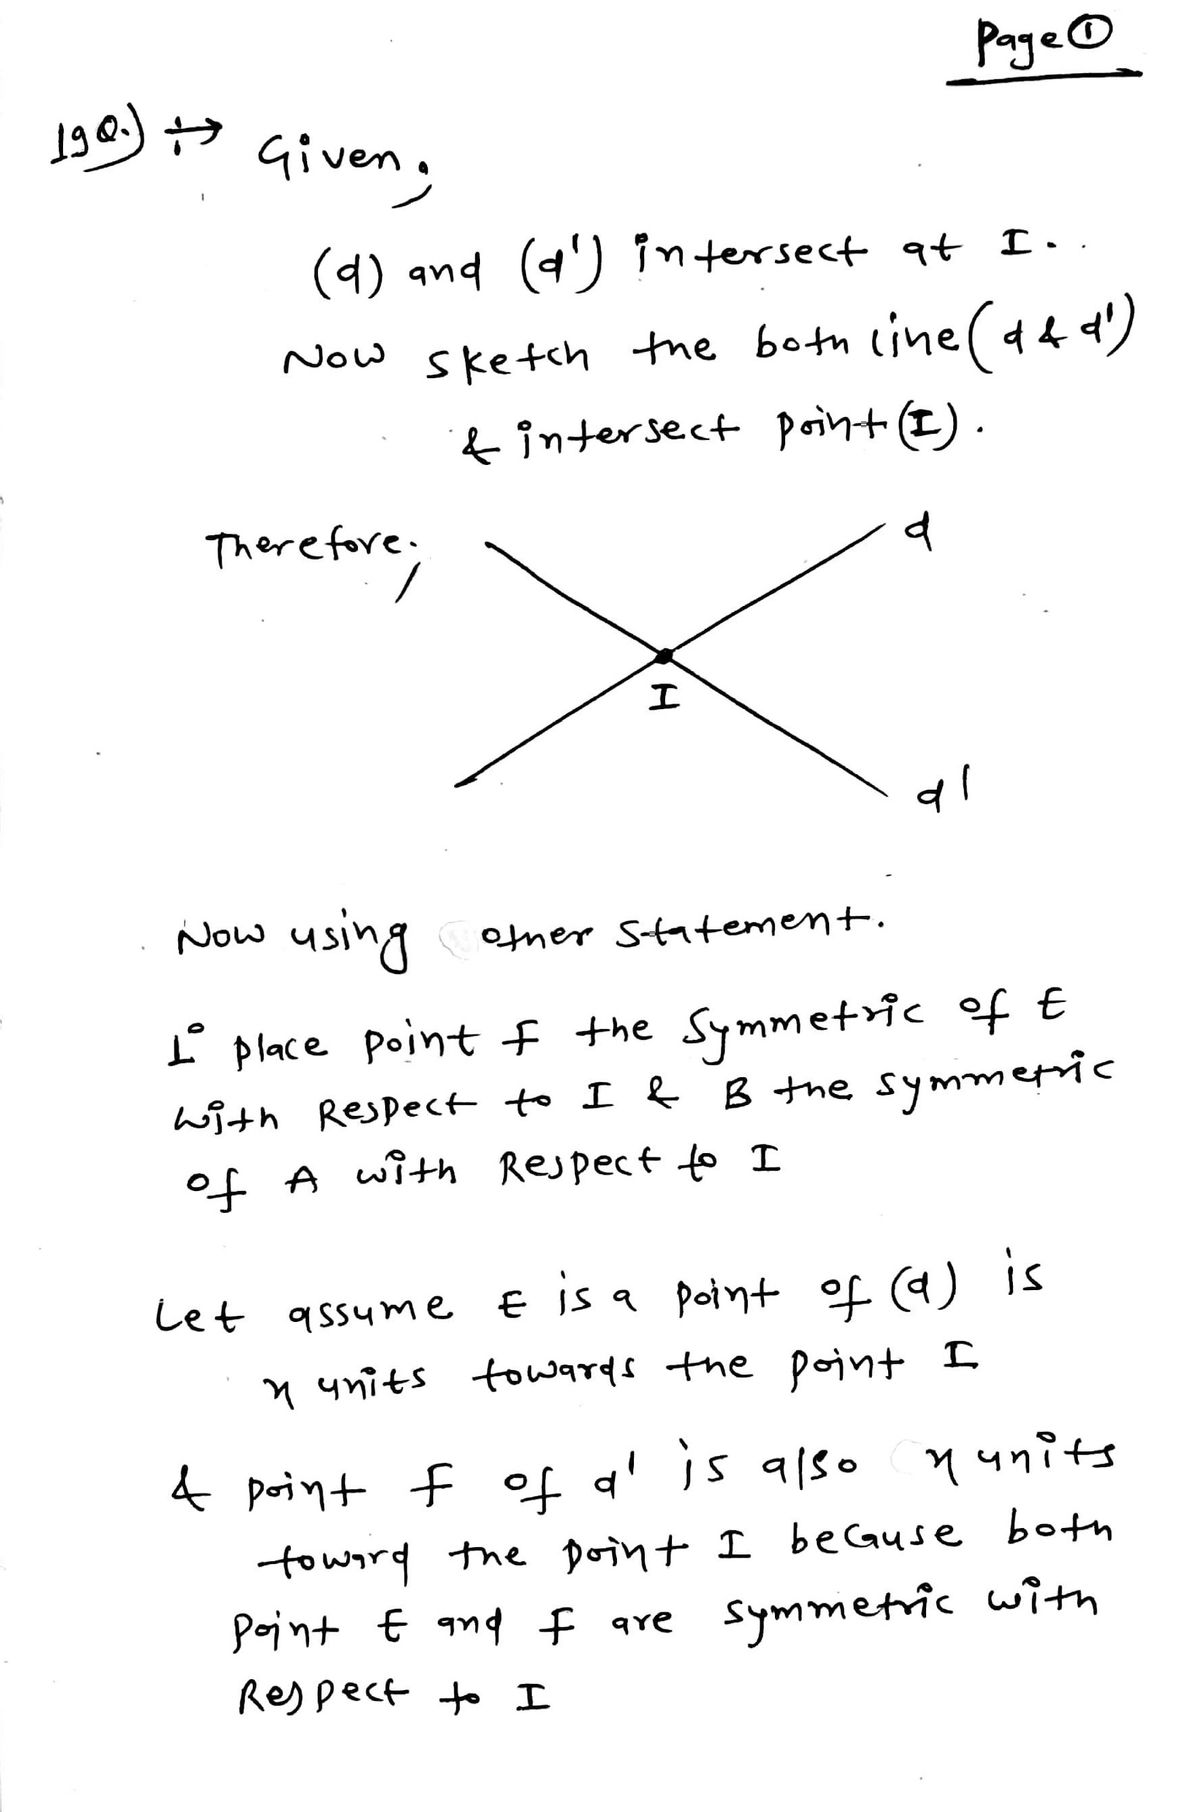 Page ①
19Q.) Given,
(d) and (d') intersect at I.
Now sketch the both line (d & d')
& intersect point (I).
Therefore,
d
I
d'
Now using other statement.
1° place point F the symmetric of E
with Respect to I & B the symmetric
of A with Respect to I
Let assume E is a point of (d) is
x units towards the point I
& point F of d' is also x units
toward the point I because both
point E and F are symmetric with
Respect to I